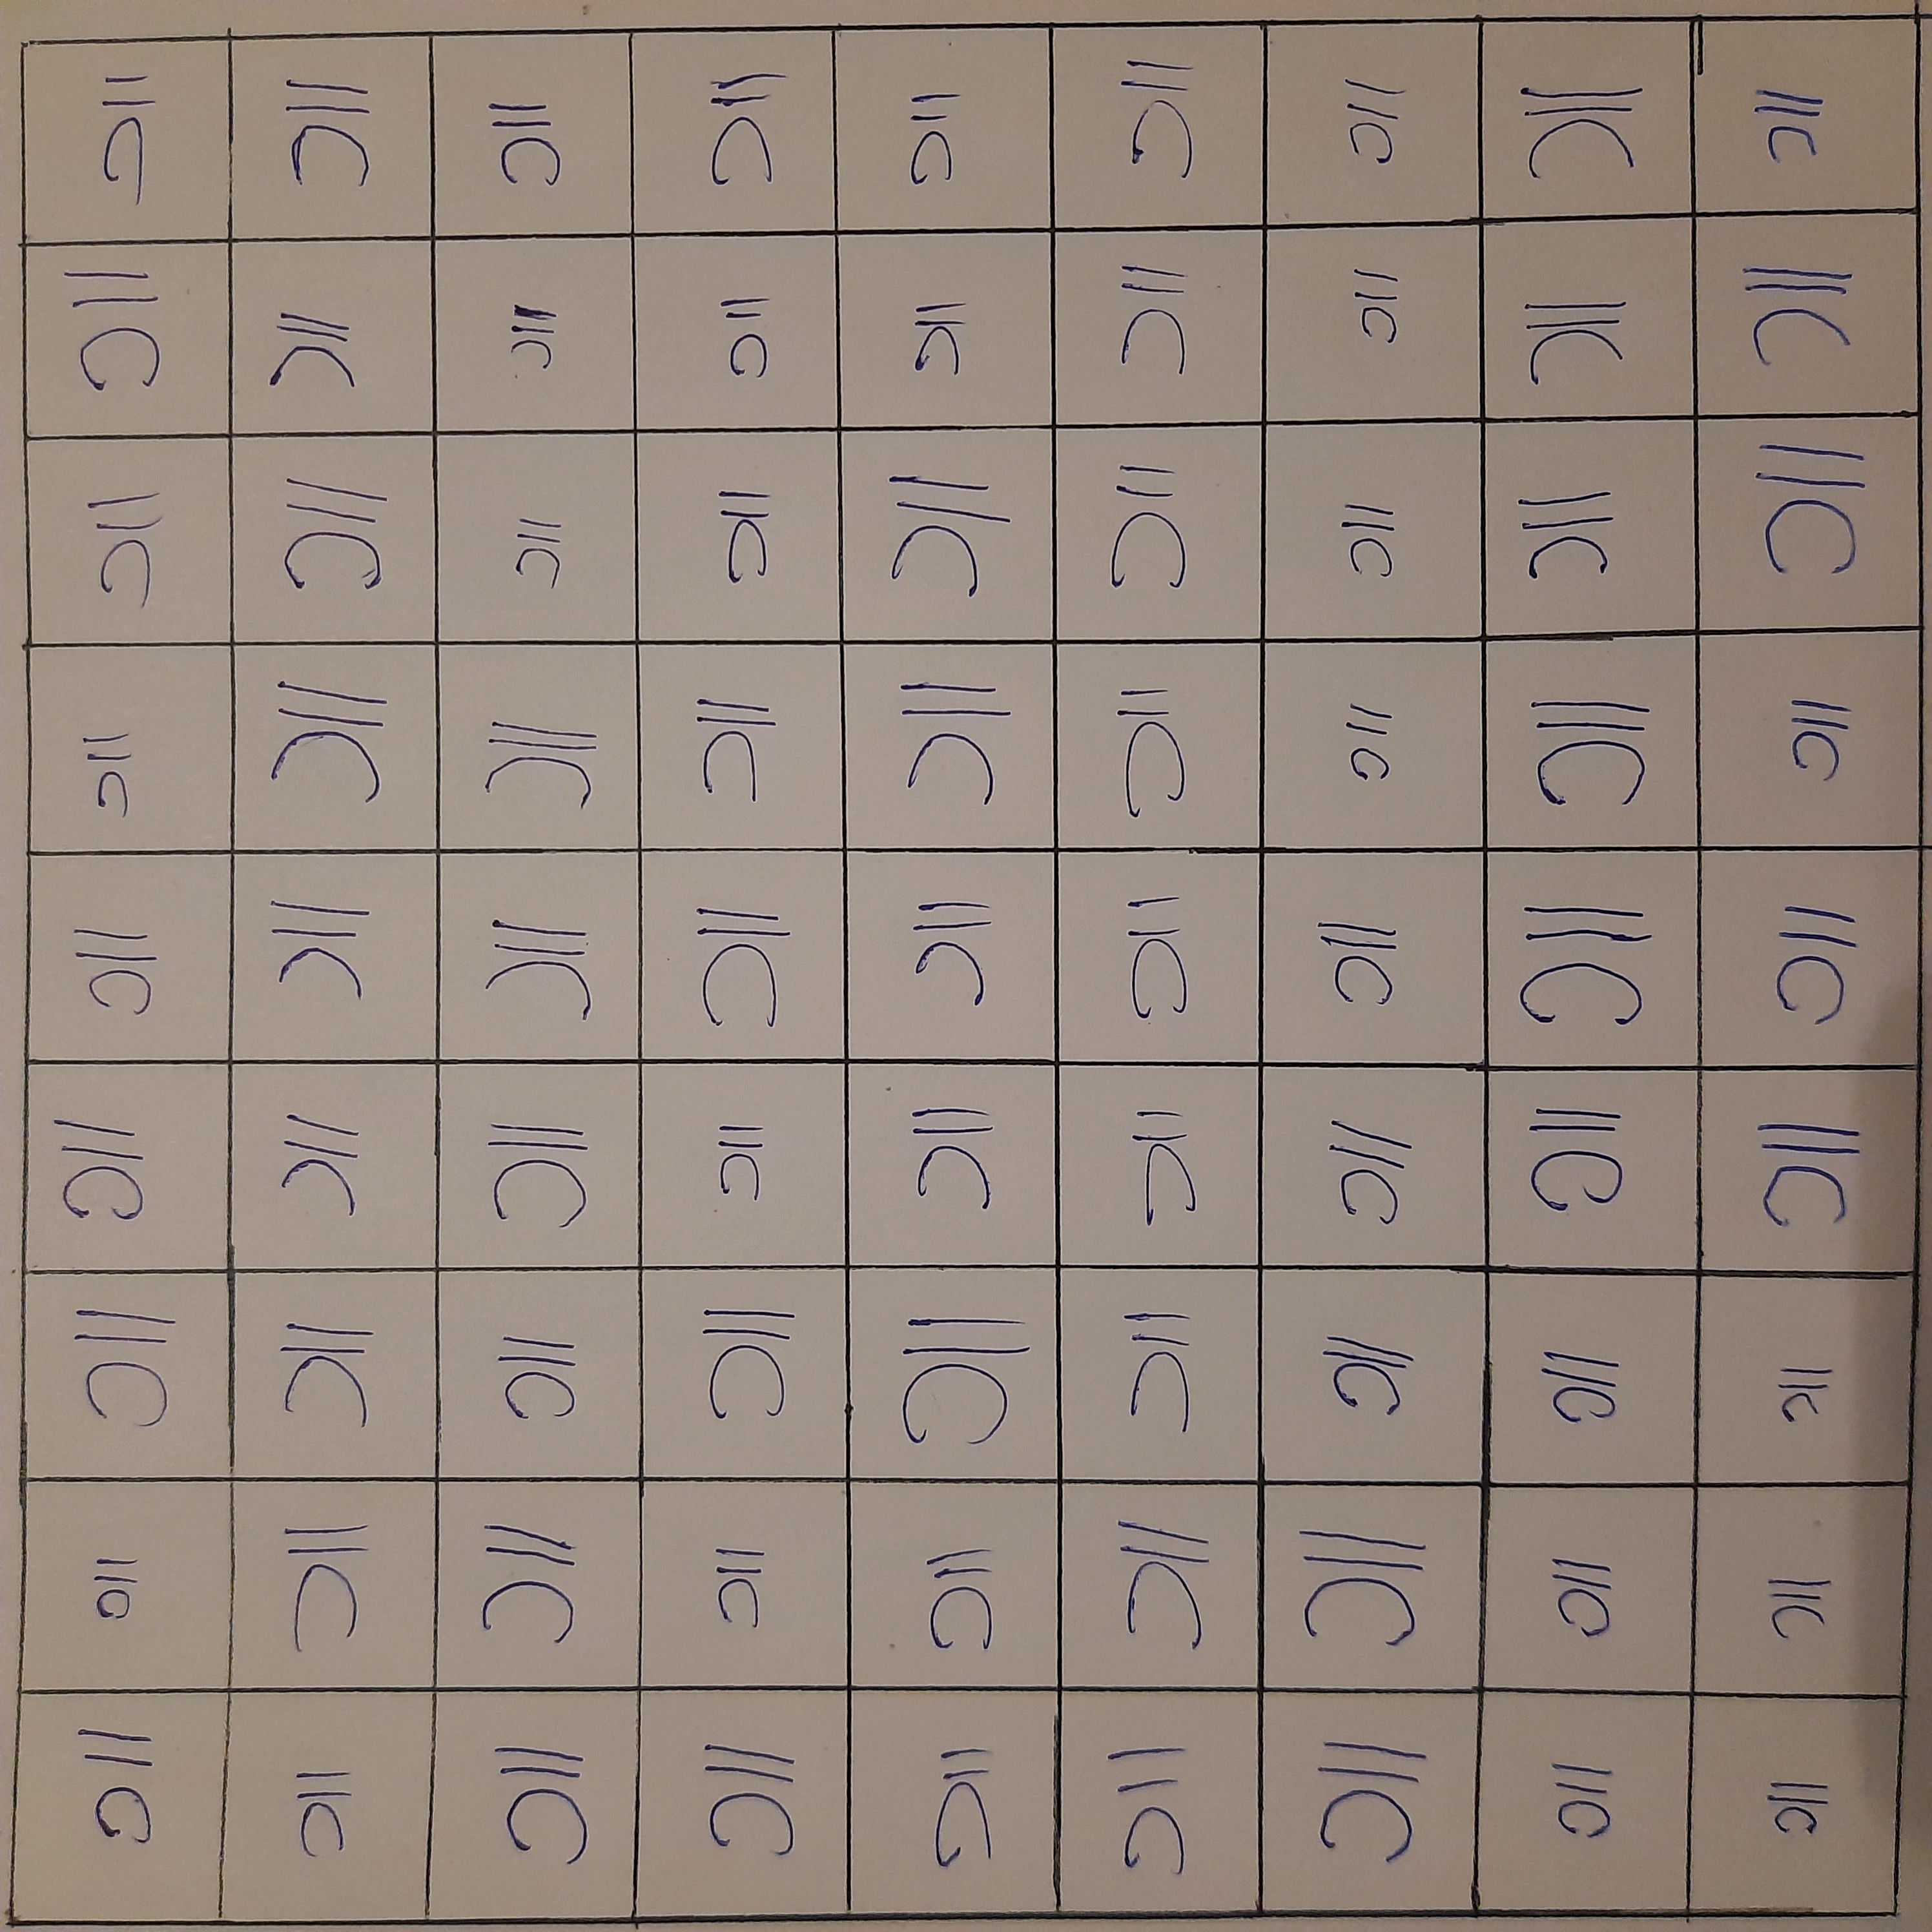 ગા ગા ગા ગા ગા ગા ગા ગા ગા
ગા ગા ગા ગા ગા ગા ગા ગા ગા
ગા ગા ગા ગા ગા ગા ગા ગા ગા
ગા ગા ગા ગા ગા ગા ગા ગા ગા
ગા ગા ગા ગા ગા ગા ગા ગા ગા
ગા ગા ગા ગા ગા ગા ગા ગા ગા
ગા ગા ગા ગા ગા ગા ગા ગા ગા
ગા ગા ગા ગા ગા ગા ગા ગા ગા
ગા ગા ગા ગા ગા ગા ગા ગા ગા